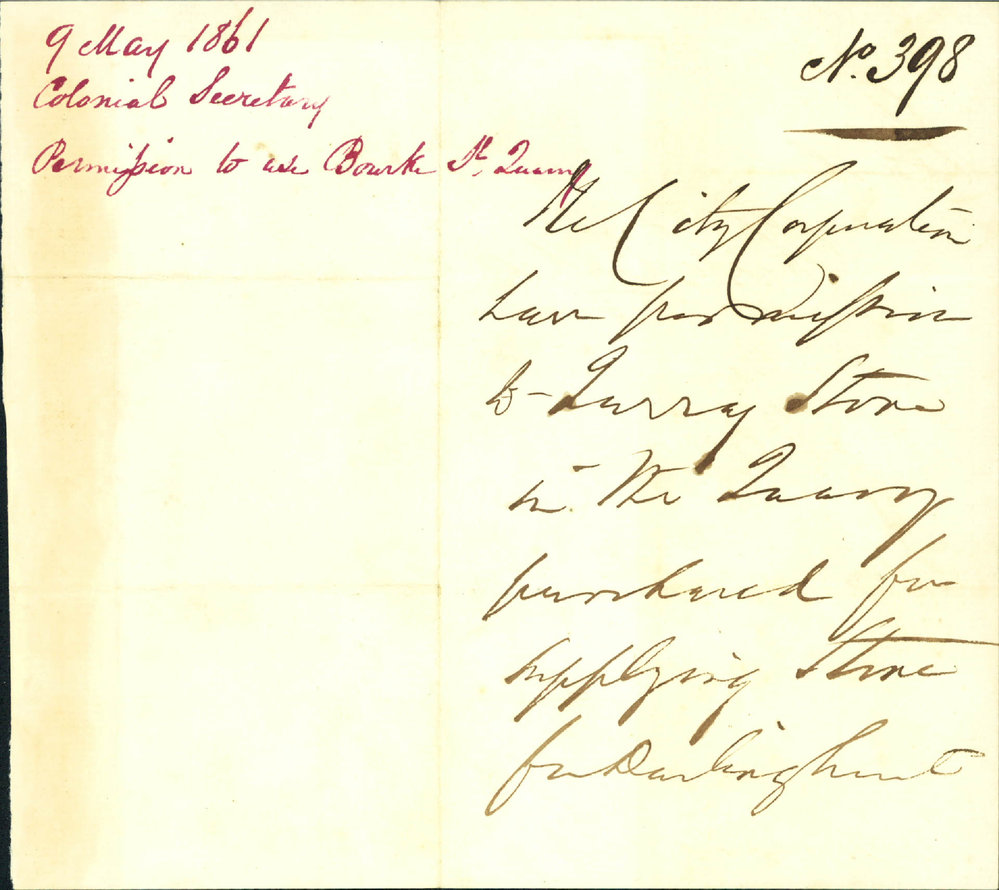 9 May 1861
Colonial Secretary
Permission to use Bourke St. Quarry
No. 398
The City Corporation
have permission
to Quarry Stone
in the Quarry
purchased for
supplying Stone
for Darlinghurst